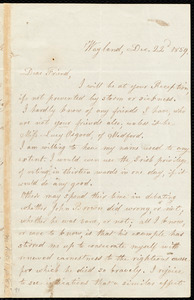 Wayland, Dec. 22d 1859
Dear Friend,
I will be at your Reception,
if not prevented by storm or sickness.
I hardly know of any friends I have, who
are not your friends also, unless it be
Miss Lucy Osgood, of Medford.
I am willing to have my name used to any
extent. I would even use the Irish privilege
of voting in thirteen wards in one day, if it
would do any good.
Men may spend their time in debating
whether John Brown did wrong or not,
whether he was sane, or not; all I know,
or care to know, is that his example has
stirred me up to consecrate myself with
renewed earnestness to the righteous cause
for which he died so bravely. I rejoice
to see indications that a similar effect